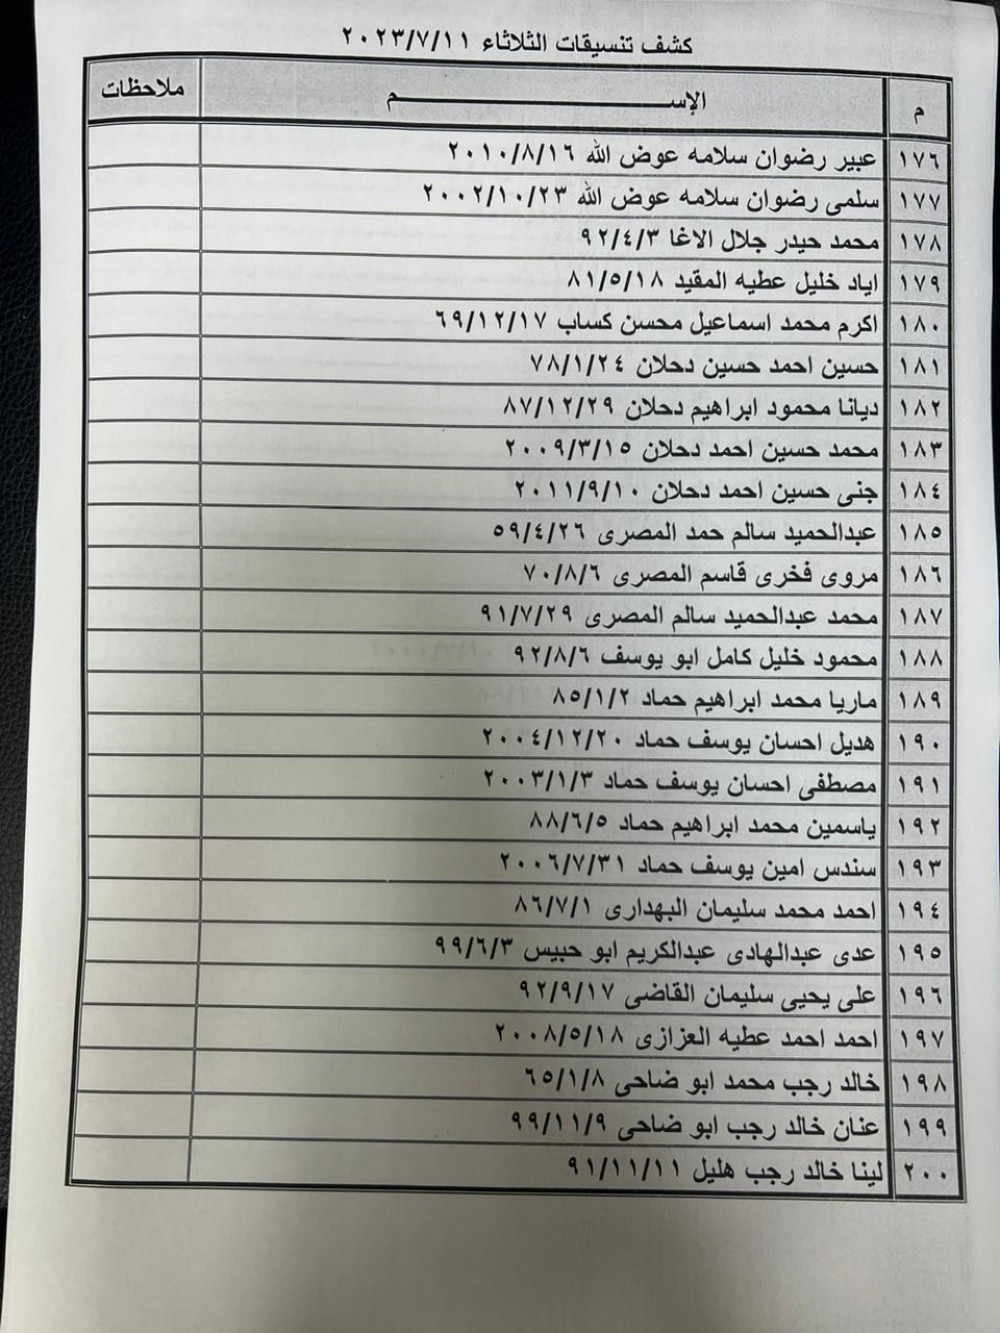 كشف تنسيقات الثلاثاء ٢٠٢٣/٧/١١
م الإســـــم ملاحظات
١٧٦ عبير رضوان سلامه عوض الله ٢٠١٠/٨/١٦
١٧٧ سلمى رضوان سلامه عوض الله ٢٠٠٢/١٠/٢٣
١٧٨ محمد حيدر جلال الاغا ٩٢/٤/٣
١٧٩ اياد خليل عطيه المقيد ٨١/٥/١٨
١٨٠ اكرم محمد اسماعيل محسن كساب ٦٩/١٢/١٧
١٨١ حسين احمد حسين دحلان ٧٨/١/٢٤
١٨٢ ديانا محمود ابراهيم دحلان ٨٧/١٢/٢٩
١٨٣ محمد حسين احمد دحلان ٢٠٠٩/٣/١٥
١٨٤ جنى حسين احمد دحلان ٢٠١١/٩/١٠
١٨٥ عبدالحميد سالم حمد المصرى ٥٩/٤/٢٦
١٨٦ مروى فخرى قاسم المصرى ٧٠/٨/٦
١٨٧ محمد عبدالحميد سالم المصرى ٩١/٧/٢٩
١٨٨ محمود خليل كامل ابو يوسف ٩٢/٨/٦
١٨٩ ماريا محمد ابراهيم حماد ٨٥/١/٢
١٩٠ هديل احسان يوسف حماد ٢٠٠٤/١٢/٢٠
١٩١ مصطفى احسان يوسف حماد ٢٠٠٣/١/٣
١٩٢ ياسمين محمد ابراهيم حماد ٨٨/٦/٥
١٩٣ سندس امين يوسف حماد ٢٠٠٦/٧/٣١
١٩٤ احمد محمد سليمان البهدارى ٨٦/٧/١
١٩٥ عدى عبدالهادى عبدالكريم ابو حبيس ٩٩/٦/٣
١٩٦ على يحيى سليمان القاضى ٩٢/٩/١٧
١٩٧ احمد احمد عطيه العزازى ٢٠٠٨/٥/١٨
١٩٨ خالد رجب محمد ابو ضاحى ٦٥/١/٨
١٩٩ عنان خالد رجب ابو ضاحى ٩٩/١١/٩
٢٠٠ لينا خالد رجب هليل ٩١/١١/١١